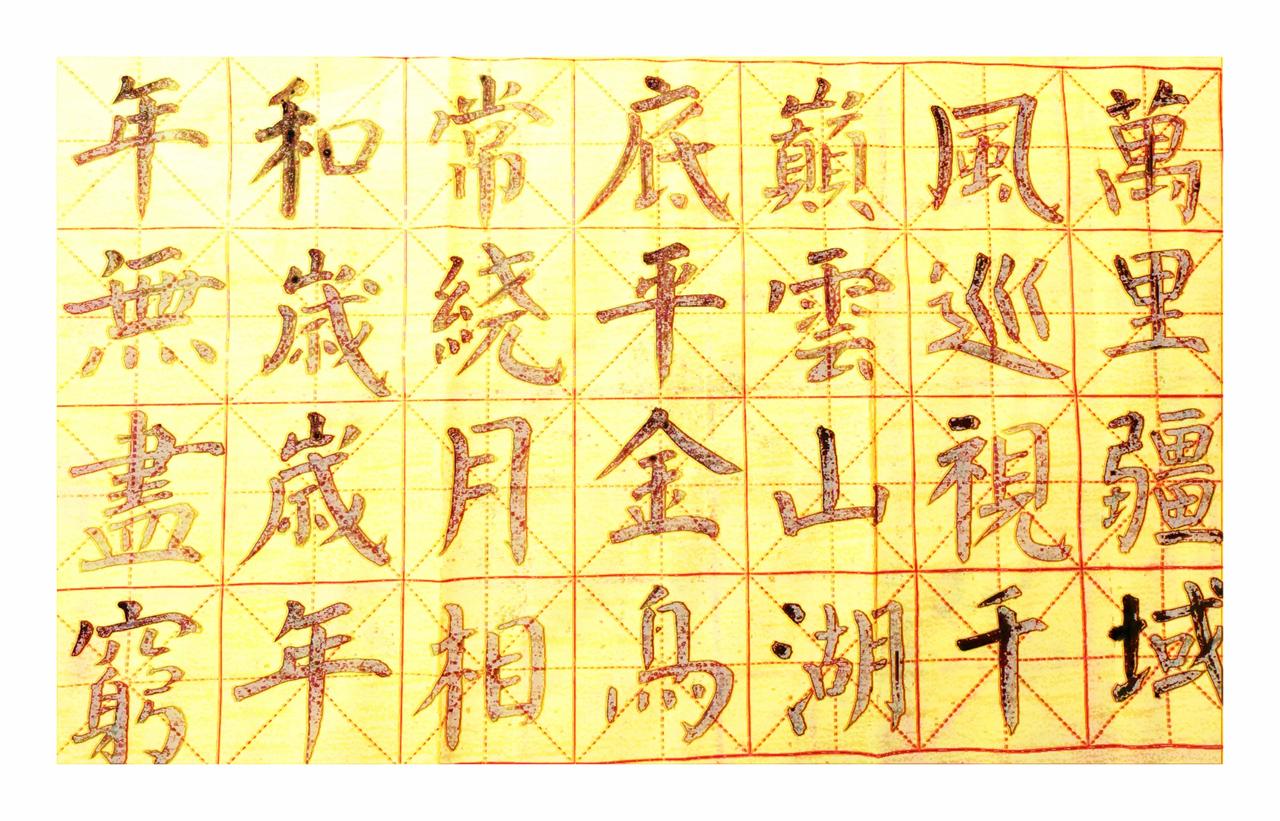 萬里疆域
風巡視千
巔雲山湖
底平金烏
常绕月相
和歳歳年
年無盡窮